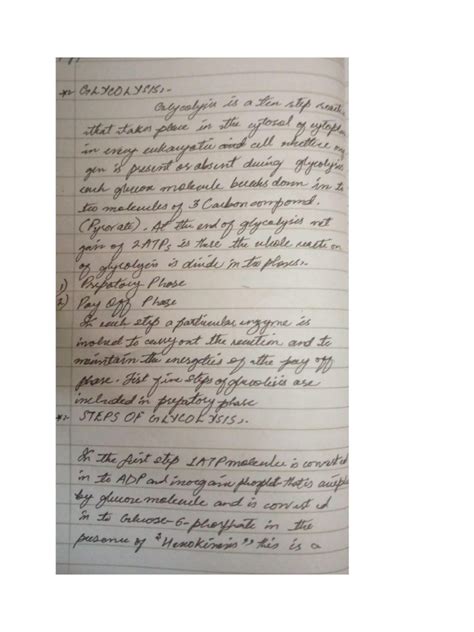 * GLYCOLYSIS:-
Glycolysis is a ten step reacti
that takes place in the cytosol of cytopla
in every eukaryotic and cell whether oxy
gen is present or absent during glycolysis
each glucose molecule breaks down in to
two molecules of 3 Carbon compound.
(Pyruvate). At the end of glycolysis net
gain of 2ATPs is there the whole reaction
of glycolysis is divide in two phases:-
1) Prepatory Phase
2) Pay Off Phase
In each step a particular enzyme is
involved to carry out the reaction and to
maintain the energetics of the pay off
phase. Fist five steps of glucolisis are
included in prepatory phase
* STEPS OF GLYCOLYSIS:-
In the first step 1ATP molecule is convert ed
in to ADP and inorgain phosphet that is accept
by glucose molecule and is convert ed
in to Glucose-6-phosphate in the
presence of "Hexokinin" this is a